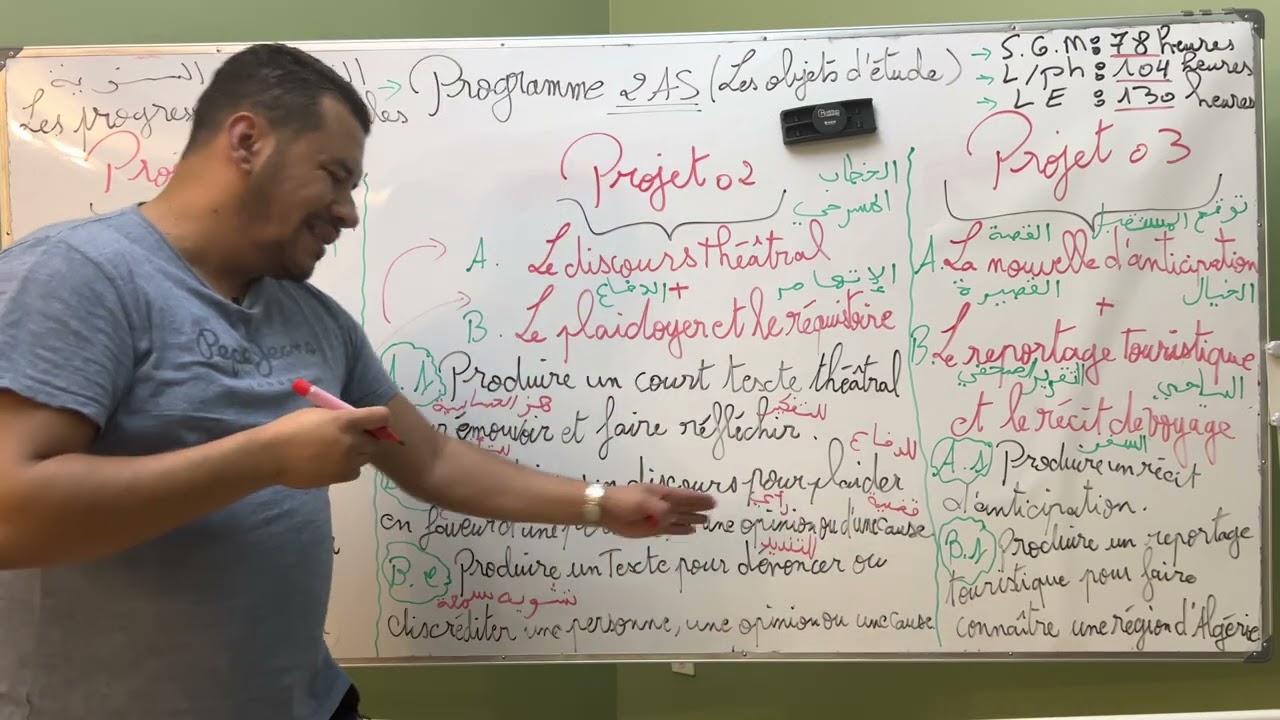 → Programme 2AS (Les objets d'étude)
→ S.G.M : 78 heures
→ L/ph : 104 heures
→ L E : 130 heures
Les progres
Projet 02
الخطاب
المسرحي
A. Le discours théâtral
الدفاع + الإتهام
B. Le plaidoyer et le réquisitoire
A.1 Produire un court texte théâtral
هز الحساسية للتفكير
émouvoir et faire réfléchir.
للدفاع
un discours pour plaider
رأي قضية
en faveur d'une une opinion ou d'une cause
للتنديد
B.2 Produire un Texte pour dénoncer ou
تشويه سمعة
discréditer une personne, une opinion ou une cause
Projet 03
القصة توقع المستقبل
A. La nouvelle d'anticipation
القصيرة الخيال
+
B. Le reportage touristique
التقرير الصحفي السياحي
et le récit de voyage
السفر
A.1 Produire un récit
d'anticipation.
B.1 Produire un reportage
touristique pour faire
connaître une région d'Algérie
Pepe Jeans